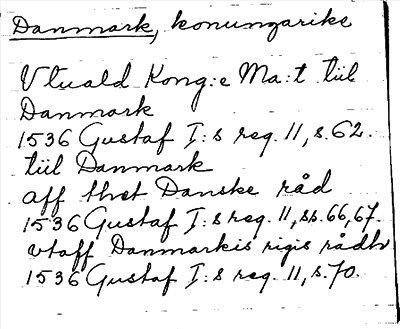 Danmark, konungarike
Vtuald Kong:e Ma:t tiil
Danmark
1536 Gustaf I:s reg. 11, s. 62.
tiil Danmark
aff thet Danske råd
1536 Gustaf I:s reg. 11, ss. 66, 67.
vtaff Danmarkis rigis rådh
1536 Gustaf I:s reg. 11, s. 70.